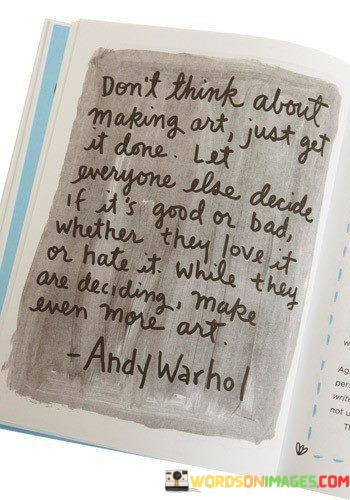 Don't think about
making art, just get
it done. Let
everyone else decide
if it's good or bad,
whether they love it
or hate it. While they
are deciding, make
even more art.
-Andy Warhol
w
Ag
pers
write
not u
Th
WORDSONIMAGES.COM